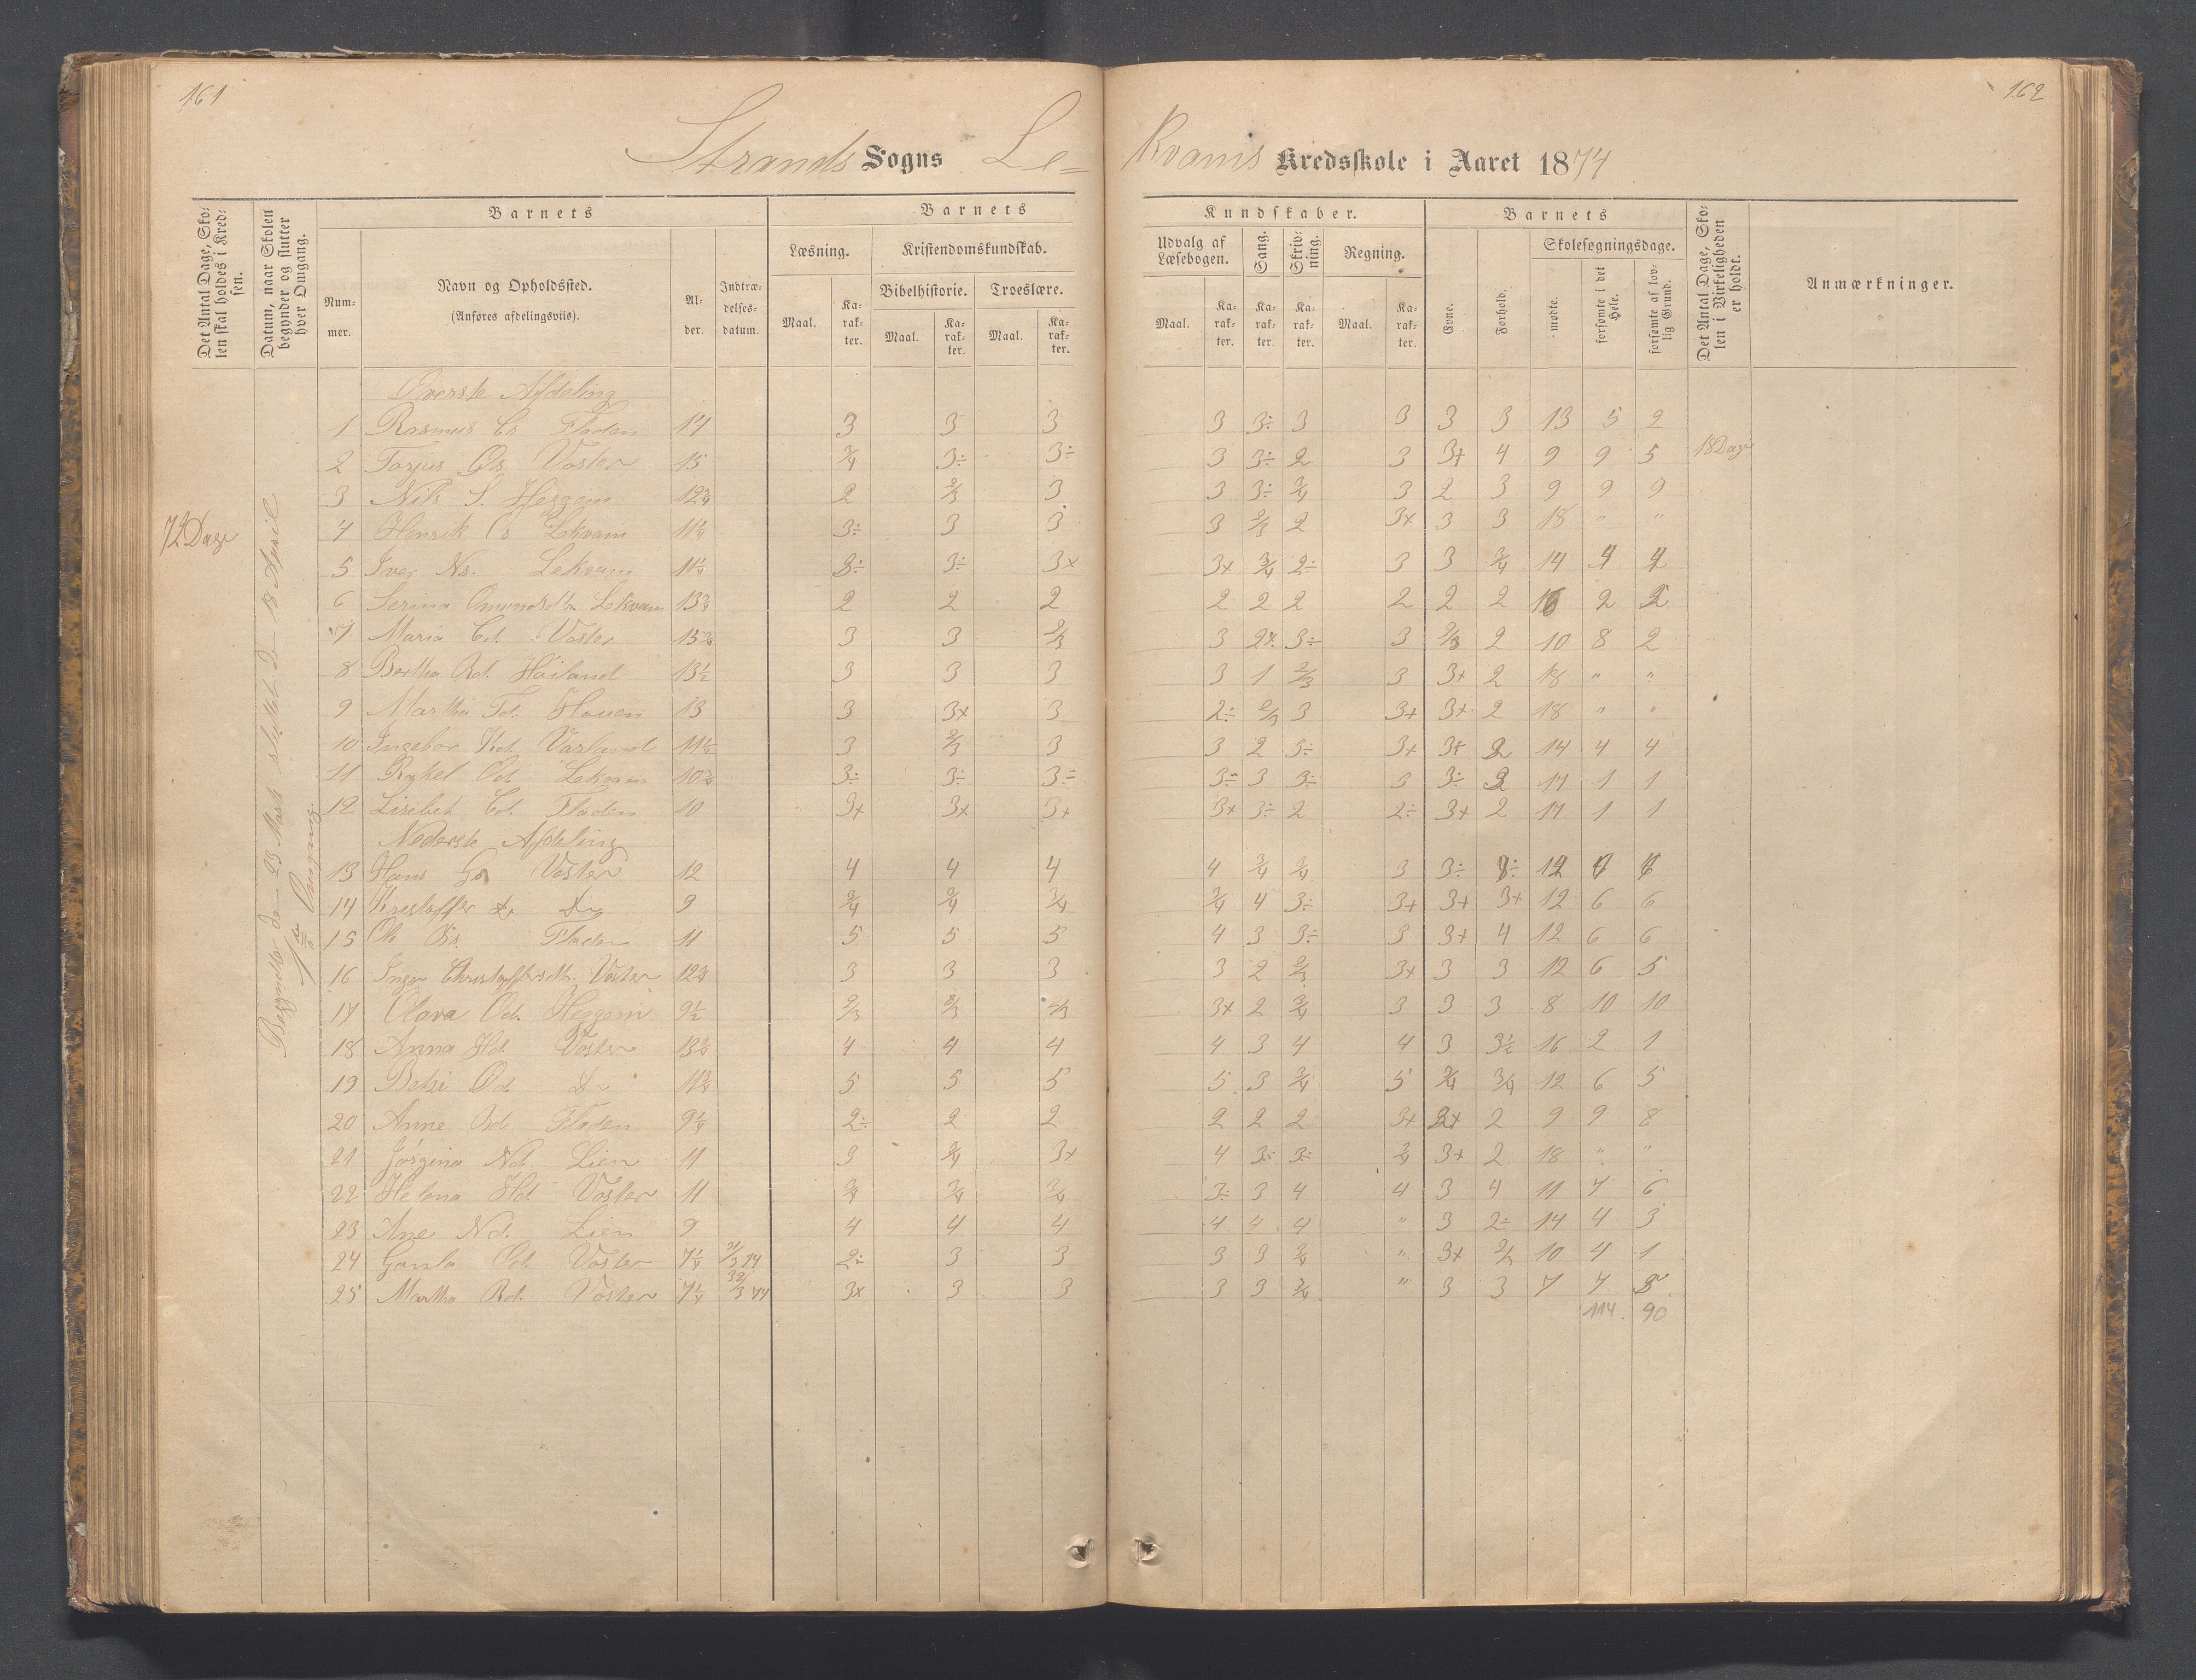 161
162
Strands Sogns Le=
Kvams Kredsskole i Aaret 1874
Det Antal Dage, Skolen skal holdes i Kredsen.
Datum, naar Skolen begynder og slutter hver Omgang.
Barnets
Nummer.
Navn og Opholdssted. (Anføres afdelingsviis).
Alder.
Indtrædelsesdatum.
Barnets
Læsning.
Maal.
Karakter.
Kristendomskundskab.
Bibelhistorie.
Maal.
Karakter.
Troeslære.
Maal.
Karakter.
Kundskaber.
Udvalg af Læsebogen.
Maal.
Karakter.
Sang.
Karakter.
Skrivning.
Karakter.
Regning.
Maal.
Karakter.
Barnets
Evne.
Forhold.
Skolesøgningsdage.
mødte.
forsømte i det Hele.
forsømte af lovlig Grund.
Det Antal Dage, Skolen i Virkeligheden er holdt.
Anmærkninger.
72 Dage
Begyndte den 23 Marts sluttet den 18 April
1ste Omgang.
Øverste Afdeling
1 Rasmus Fladen 14 3 3 3 3 3÷ 3 3 3 3 13 5 2
2 Torjus Os Voster 15 3/4 3÷ 3÷ 3 3÷ 2 3 3+ 4 9 9 5 18 Dage
3 Nils S. Heggem 12 3/4 2 2/3 3 3 3÷ 3/4 3 2 3 9 9 9
4 Henrik Lekvam 11 1/4 3÷ 3 3 3 2/3 2 3x 3 3 18 " "
5 Iver Ns. Lekvam 11 1/4 3÷ 3÷ 3x 3x 3/4 2÷ 3 3 3/4 14 4 4
6 Serina Omundsdtr. Lekvam 13 3/4 2 2 2 2 2 2 2 2 2 16 2 2
7 Maria Cd. Voster 13 3/4 3 3 2/3 3 2x 3÷ 3 2/3 2 10 8 2
8 Bertha Rd. Høiland 13 1/2 3 3 3 3 1 2/3 3 3+ 2 18 " "
9 Marthe Td. Hauen 13 3 3x 3 2÷ 2/3 3 3+ 3+ 2 18 " "
10 Ingebor Kd. Varland 11 1/2 3 2/3 3 3 2 3÷ 3+ 3+ 2 14 4 4
11 Rakel Od. Lekvam 10 3/4 3÷ 3÷ 3÷ 3÷ 3 3÷ 3 3÷ 2 17 1 1
12 Lisebet Cd. Fladen 10 3+ 3x 3+ 3+ 3÷ 2 2÷ 3+ 2 17 1 1
Nederste Afdeling
13 Hans Gs Voster 12 4 4 4 4 3/4 3/4 3 3÷ 12
14 Kristoffer Do 9 3/4 3/4 3/4 3/4 4 3÷ 3+ 3+ 3+ 12 6 6
15 Ole Fladen 11 5 5 5 4 3 3÷ 3 3+ 4 12 6 6
16 Inger Christoffersdtr. Voster 12 3/4 3 3 3 3 2 2/3 3+ 3 3 12 6 5
17 Olava Od. Heggem 9 1/2 2/3 2/3 2/3 3+ 2 3/4 3 3 3 8 10 10
18 Anna Hd. Voster 13 3/4 4 4 4 4 3 4 4 3 3 1/2 16 2 1
19 Betsi Od. Do 11 3/4 5 5 5 5 3 3/4 5 3/4 3/4 12 6 5
20 Anne Rd. Fladen 9 1/4 2÷ 2 2 2 2 2 3+ 2+ 2 9 9 8
21 Jørgina Nd. Lien 11 3 3/4 3+ 4 3÷ 3÷ 3/4 3+ 2 18 " "
22 Helena Hd. Voster 11 3/4 3/4 3/4 3÷ 3 4 4 3 4 11 7 6
23 Ane Nd. Lien 9 4 4 4 4 4 4 " 3 2÷ 14 4 3
24 Gonla Od. Voster 7 1/4 31/3 74 2÷ 3 3 3 3 3/4 " 3+ 10 4 1
25 Martha Rd. Voster 7 1/4 3x 3 3 3 3 3/4 " 3 3 7 7
114. 90